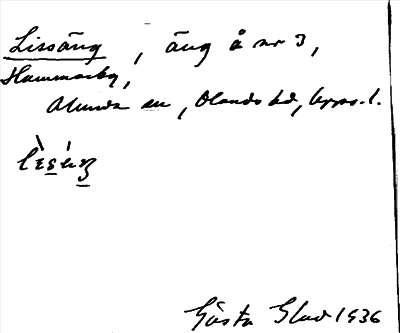 Lissäng, äng å nr 3,
Hammarby,
Alunda sn, Olands hd, Upps. l.
Gösta Glad 1936